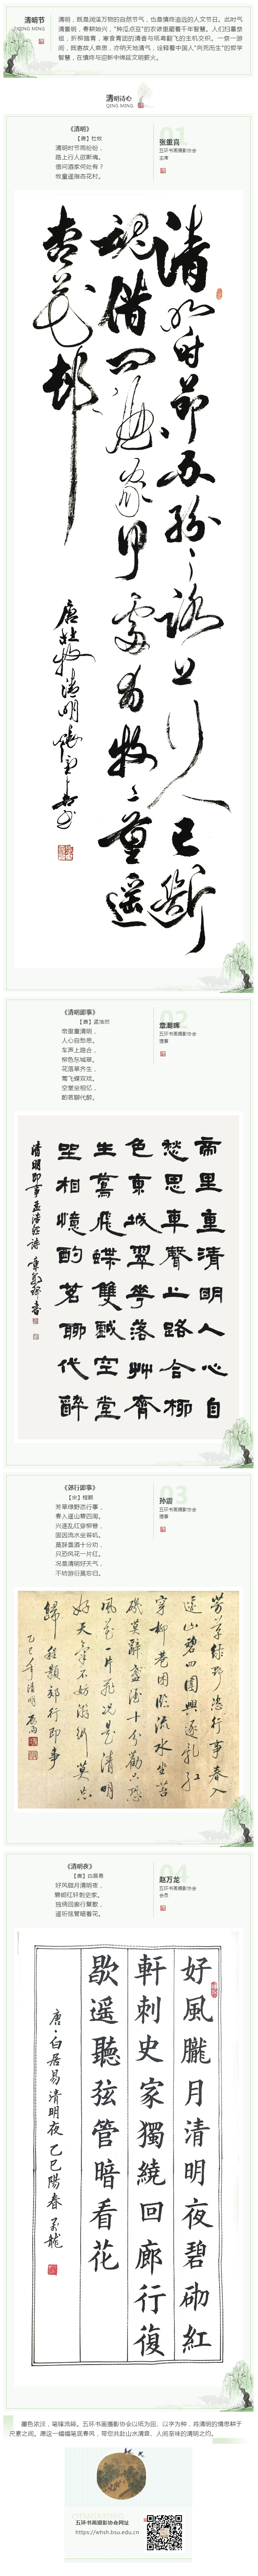 清明节
QING MING
清明，既是润泽万物的自然节气，也是慎终追远的人文节日。此时气
清景明，春耕始兴，“种瓜点豆”的农谚里藏着千年智慧。人们扫墓祭
祖，折柳踏青，寒食青团的清香与纸鸢翻飞的生机交织。一祭一游
间，既寄故人哀思，亦纳天地清气，诠释着中国人“向死而生”的哲学
智慧，在慎终与迎新中绵延文明薪火。
清明诗心
QING MING
《清明》
【唐】杜牧
清明时节雨纷纷，
路上行人欲断魂。
借问酒家何处有？
牧童遥指杏花村。
01
张重喜
五环书画摄影协会
主席
清明时节雨纷纷路上行人欲断
魂借问酒家何处有牧童遥
杏花村
唐杜牧清明
《清明即事》
【唐】孟浩然
帝里重清明，
人心自愁思。
车声上路合，
柳色东城翠。
花落草齐生，
莺飞蝶双戏。
空堂坐相忆，
酌茗聊代醉。
02
章潮晖
五环书画摄影协会
理事
帝里重清明人心自
愁思車聲上路合柳
色東城翠花落艸齊
生鶯飛蝶雙戲空堂
坐相憶酌茗聊代醉
清明即事孟浩然诗
《郊行即事》
【宋】程颢
芳草绿野恣行事，
春入遥山碧四围。
兴逐乱红穿柳巷，
困临流水坐苔矶。
莫辞盏酒十分劝，
只恐风花一片红。
况是清明好天气，
不妨游衍莫忘归。
03
孙震
五环书画摄影协会
理事
芳草绿野恣行事春入
遥山碧四围兴逐乱红
穿柳巷困临流水坐苔
矶莫辞盏酒十分劝只恐
风花一片红况是清明
好天气不妨游衍莫忘
归程颢郊行即事
乙巳年清明
《清明夜》
【唐】白居易
好风胧月清明夜，
碧砌红轩刺史家。
独绕回廊行复歇，
遥听弦管暗看花。
04
赵万龙
五环书画摄影协会
会员
好風朧月清明夜碧砌紅
軒刺史家獨繞回廊行復
歇遥聽弦管暗看花
唐·白居易清明夜乙巳陽春万龍
墨色浓淡，笔锋流转。五环书画摄影协会以纸为田，以字为种，将清明的情思耕于
尺素之间。愿这一幅幅笔底春风，带您共赴山水清音、人间至味的清明之约。
QINGMING
五环书画摄影协会网址
https://whsh.bsu.edu.cn